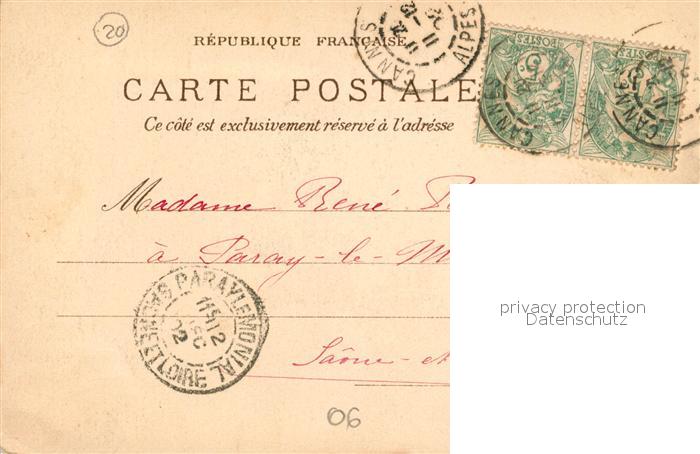 20
CANNES
ALPES
11
RÉPUBLIQUE FRANÇAISE
CARTE POSTALE
Ce côté est exclusivement réservé à l'adrésse
POSTES
5
POSTES
5
CANNES
CANNES
Madame René
à Paray-le-M
privacy protection
Datenschutz
PARAY-LE-MONIAL
SAONE-ET-LOIRE
12
DEC
02
Saône-et
06